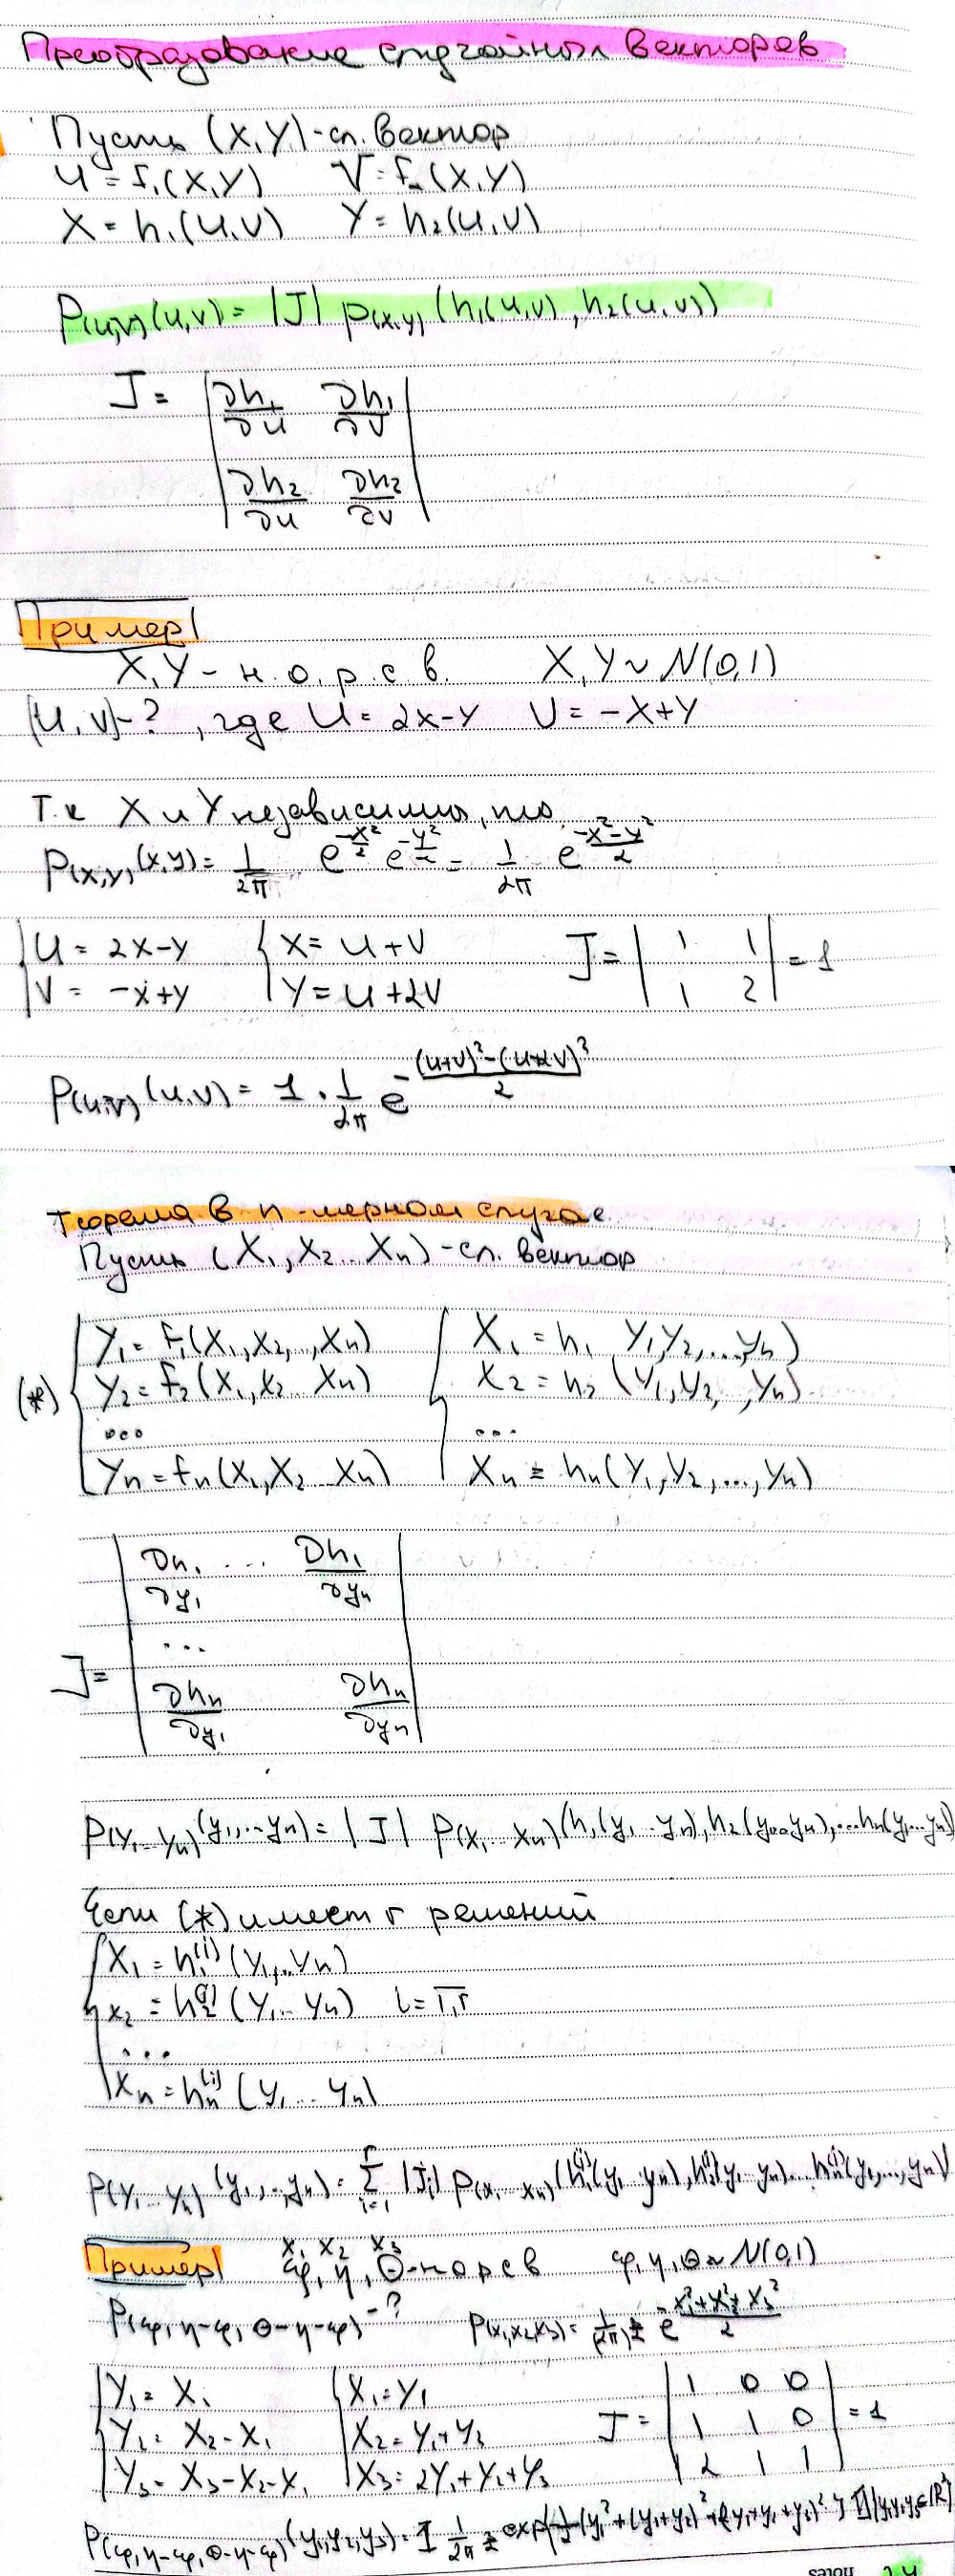 Преобразование случайных векторов
Пусть (X,Y) - сл. вектор
U = f₁(X,Y) V = f₂(X,Y)
X = h₁(U,V) Y = h₂(U,V)
p(U,V)(u,v) = |J| p(x,y) (h₁(u,v), h₂(u,v))
J = | ∂h₁/∂u ∂h₁/∂v |
| ∂h₂/∂u ∂h₂/∂v |
Пример
X,Y - н.о.р.с.в. X,Y ~ N(0,1)
(U,V) - ?, где U = 2X-Y V = -X+Y
Т.к X и Y независимы, то
p(X,Y)(x,y) = 1/2π e^(-x²/2) e^(-y²/2) = 1/2π e^((-x²-y²)/2)
{ U = 2X-Y { X = U+V J = | 1 1 | = 1
V = -X+Y Y = U+2V | 1 2 |
p(U,V)(u,v) = 1 · 1/2π e^(-((u+v)²-(u+2v)²)/2)
Теорема в n-мерном случае
Пусть (X₁, X₂...Xn) - сл. вектор
(*) { Y₁ = f₁(X₁,X₂,...,Xn) { X₁ = h₁ Y₁,Y₂,...,Yn)
Y₂ = f₂(X₁,X₂...Xn) X₂ = h₂(Y₁,Y₂,...,Yn)
... ...
Yn = fn(X₁,X₂...Xn) Xn = hn(Y₁,Y₂,...,Yn)
J = | ∂h₁/∂y₁ ... ∂h₁/∂yn |
...
| ∂hn/∂y₁ ∂hn/∂yn |
p(Y₁...Yn)(y₁,...yn) = |J| p(X₁...Xn)(h₁(y₁...yn), h₂(y₁...yn),...hn(y₁...yn))
Если (*) имеет r решений
{ X₁ = h₁⁽ⁱ⁾(Y₁,..Yn)
X₂ = h₂⁽ⁱ⁾(Y₁...Yn) i = 1,r
...
Xn = hn⁽ⁱ⁾(Y₁...Yn)
p(Y₁...Yn)(y₁,...,yn) = Σ i=1 r |Ji| p(X₁...Xn)(h₁⁽ⁱ⁾(y₁...yn), h₂⁽ⁱ⁾(y₁...yn)...hn⁽ⁱ⁾(y₁,...,yn))
X₁ X₂ X₃
Пример φ, η, Θ - н о р с в φ, η, Θ ~ N(0,1)
p(φ, η-φ, Θ-η-φ) - ? p(X₁,X₂,X₃) = 1/(2π)^(3/2) e^(-(x₁²+x₂²+x₃²)/2)
{ Y₁ = X₁ { X₁ = Y₁ J = | 1 0 0 | = 1
Y₂ = X₂-X₁ X₂ = Y₁+Y₂ | 1 1 0 |
Y₃ = X₃-X₂-X₁ X₃ = 2Y₁+Y₂+Y₃ | 2 1 1 |
p(φ, η-φ, Θ-η-φ)(y₁,y₂,y₃) =
notes